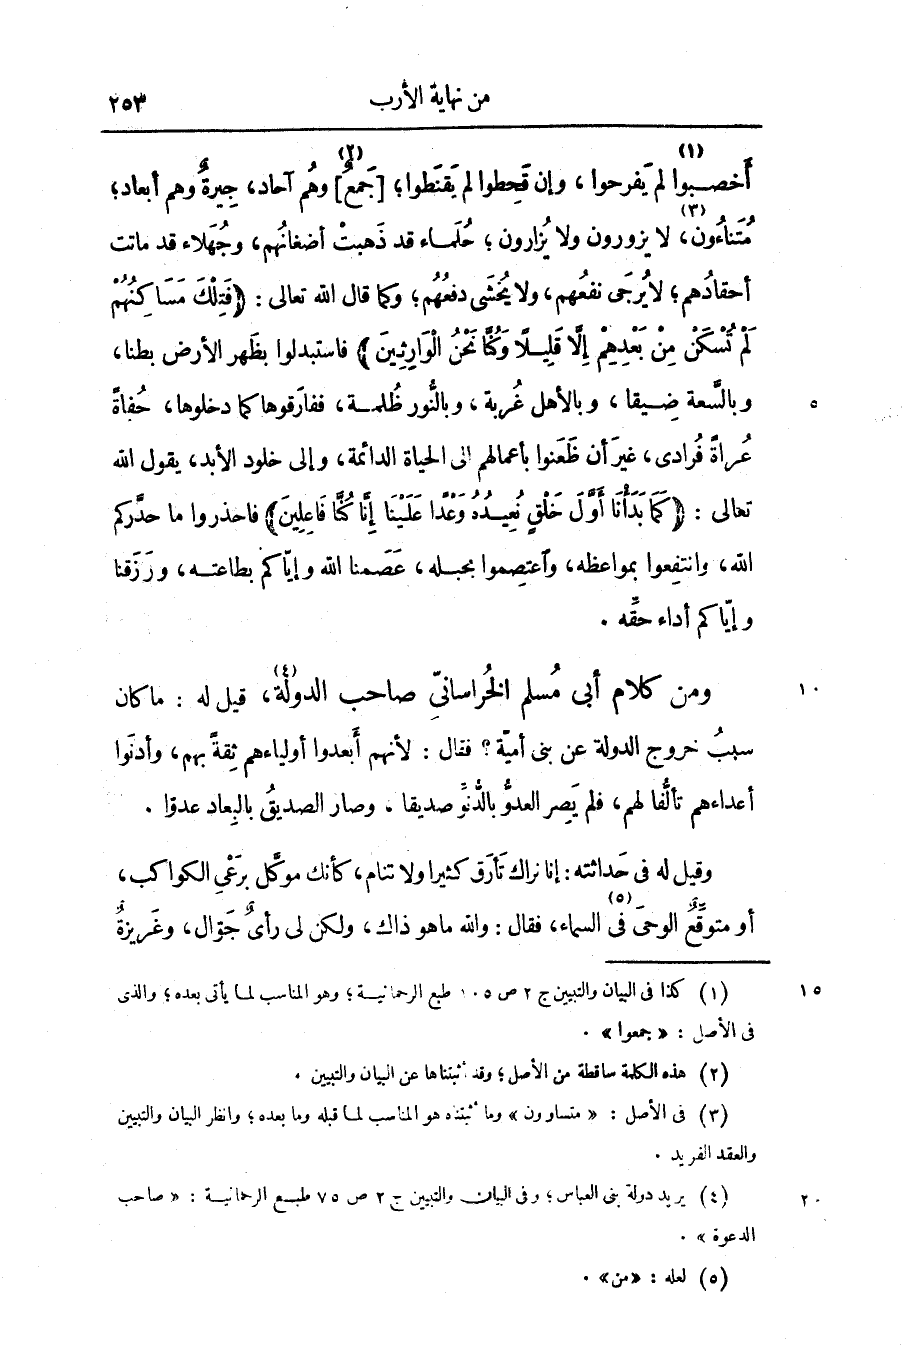 من نهاية الأرب ٢٥٣
أَخصبوا (١) لم يَفرحوا، وإن قَحِطوا لم يَقنَطوا؛ [جَمعٌ] (٢) وهُم آحاد، جِيرةٌ وهم أبعاد؛
مُتَناءُون (٣)، لا يزورون ولا يُزارون؛ حُلَماء قد ذَهبتْ أضغانُهم، وجُهَلاء قد ماتت
أحقادُهم؛ لا يُرجَى نفعُهم، ولا يُخشَى دفعُهُم؛ وكما قال الله تعالى: ﴿فَتِلْكَ مَسَاكِنُهُمْ
لَمْ تُسْكَنْ مِنْ بَعْدِهِمْ إِلَّا قَلِيلًا وَكُنَّا نَحْنُ الْوَارِثِينَ﴾ فاستبدلوا بظَهر الأرض بطنا،
وبالسَّعة ضِيقا، وبالأهل غُربة، وبالنُّور ظُلمة، ففارَقوها كما دخلوها، حُفاةً ٥
عُراةً فُرادى، غيرَ أن ظَعَنوا بأعمالهم الى الحياة الدائمة، وإلى خلود الأبد، يقول الله
تعالى: ﴿كَمَا بَدَأْنَا أَوَّلَ خَلْقٍ نُعِيدُهُ وَعْدًا عَلَيْنَا إِنَّا كُنَّا فَاعِلِينَ﴾ فاحذروا ما حذَّركم
الله، وانتفِعوا بمواعظه، وآعتصِموا بحبله، عَصَمنا الله وإيّاكم بطاعته، ورَزَقنا
وإيّاكم أداء حقِّه.
ومن كلام أبى مُسلم الخُراسانىّ صاحب الدولة (٤)، قيل له: ما كان ١٠
سببُ خروج الدولة عن بنى أميّة؟ فقال: لأنهم أَبعدوا أولياءهم ثِقةً بهم، وأدنَوا
أعداءهم تألُّفا لهم، فلم يَصِر العدوُّ بالدُّنوِّ صديقا. وصار الصديقُ بالبِعاد عدوّا.
وقيل له فى حَداثته: إنا نراك تَأْرَق كثيرا ولا تنام، كأنك موكَّل برَعْىِ الكواكب،
أو متوقِّعٌ الوحىَ فى (٥) السماء، فقال: والله ما هو ذاك، ولكن لى رأىٌ جَوّال، وغَريزةٌ
(١) كذا فى البيان والتبيين ج ٢ ص ١٠٥ طبع الرحمانية؛ وهو المناسب لما يأتى بعده؛ والذى ١٥
فى الأصل: «جمعوا».
(٢) هذه الكلمة ساقطة من الأصل؛ وقد أثبتناها عن البيان والتبيين.
(٣) فى الأصل: «متساوون» وما أثبتناه هو المناسب لما قبله وما بعده؛ وانظر البيان والتبيين
والعقد الفريد.
(٤) يريد دولة بنى العباس؛ وفى البيان والتبيين ج ٢ ص ٧٥ طبع الرحمانية: «صاحب ٢٠
الدعوة».
(٥) لعله: «من».